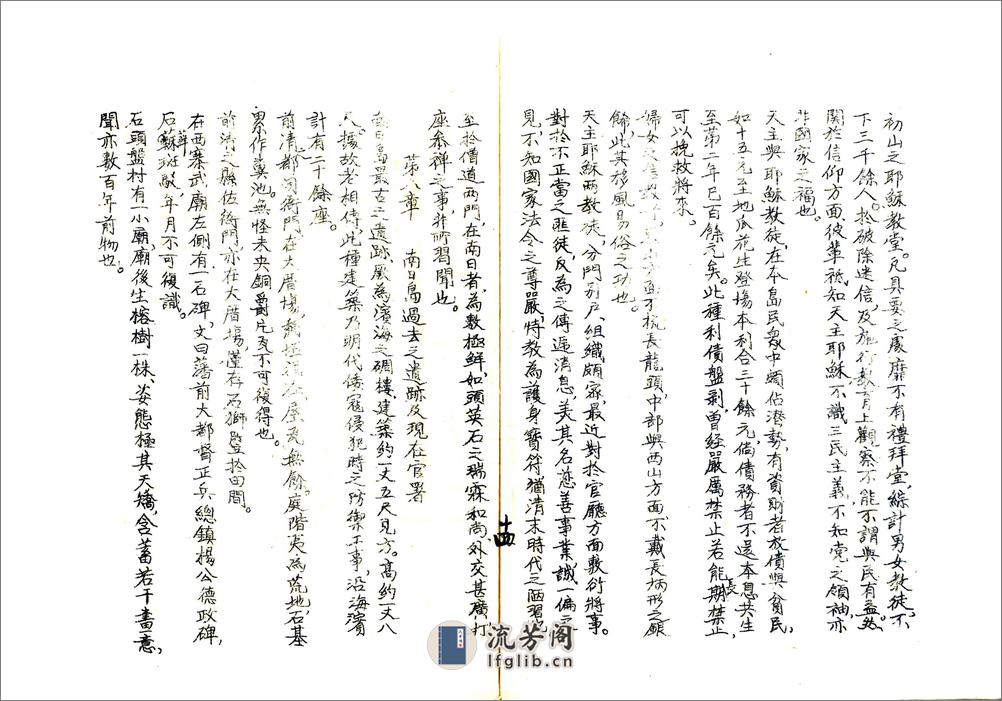 初山之耶穌教堂。凡具要之處靡不有禮拜堂,綜計男女教徒,不
下三千餘人。於破除迷信,及施行教育上觀察不能不謂與民有益。然
關於信仰方面,彼輩祇知天主耶穌,不識三民主義,不知黨之領袖,亦
非國家之福也。
天主與耶穌教徒,在本島民眾中獨佔潛勢,有資財者放債與貧民,
如十五元至地瓜花生登場本利合三十餘元,倘債務者不還本息共生
至第二年已百餘元矣。此種利債盤剝,曾經嚴厲禁止,若能長期禁止,
可以挽救將來。
婦女之 方面不梳長龍頭,中部與西山方面不戴長柄形之銀
飾,此其移風易俗之功也。
天主耶穌兩教徒,分門別戶,組織頗密,最近對於官廳方面敷衍將事。
對於不正當之匪徒,反為之傳遞消息,美其名慈善事業,誠一偏之
見,不知國家法令之尊嚴,恃教為護身寶符,猶清末時代之陋習也
十四
至於僧道兩門,在南日者,為數極鮮,如頭英石之瑞霖和尚,外交甚廣,打
座參禪之事,非所習聞也。
第 章 南日島過去之遺跡及現在官署
南日島最古之遺跡,厥為濱海之碉樓,建築約一丈五尺見方。高約一丈八
尺,據故老相傳,此種建築乃明代倭寇侵犯時之防禦工事,沿海濱
計有二十餘座。
前清都司衙門,在大厝場 屋瓦無餘。庭階夷為荒地,石基
累作糞池。無怪未央銅爵片瓦不可復得也。
前清之縣佐衙門,亦在大厝場,僅存石獅墮於田間。
在西寨武廟左側,有一石碑,文曰藩前大都督正兵總鎮楊公德政碑,
石蘚斑駁,年月不可復識。
石頭盤村有一小廟,廟後生榕樹一株,姿態極其夭矯,含蓄若干畫意,
聞亦數百年前物也。
流芳阁
lfglib.cn